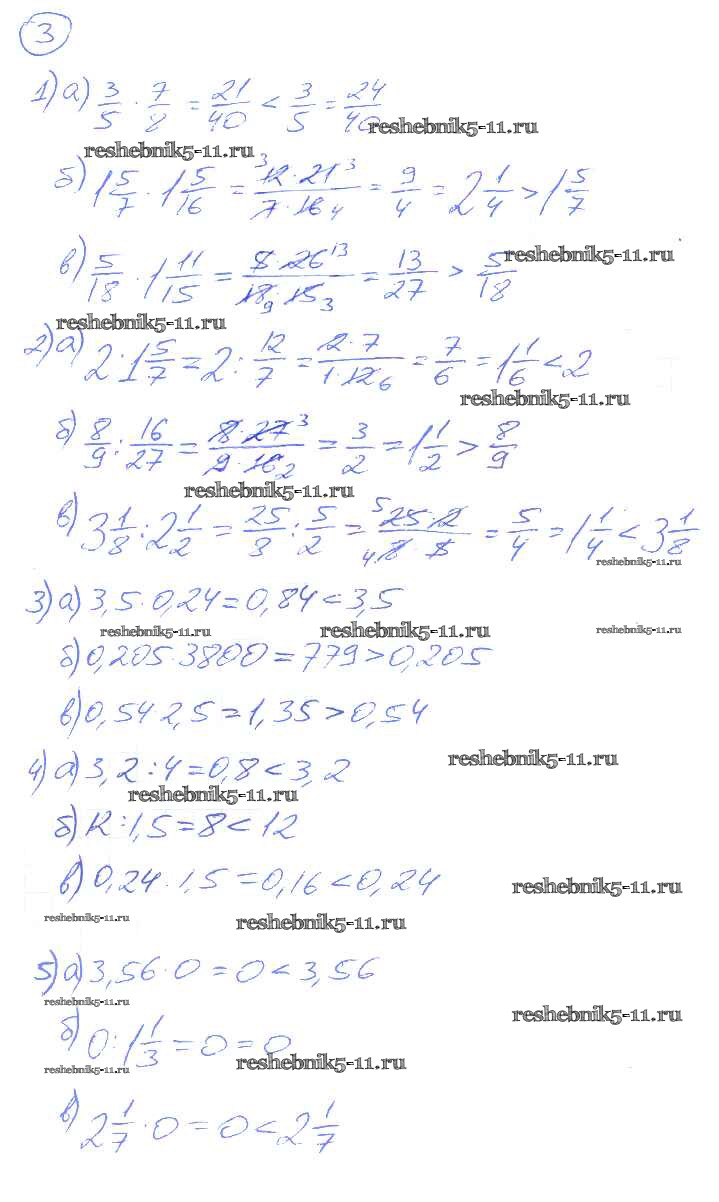 3
1) а) 3/5 · 7/8 = 21/40 < 3/5 = 24/40
reshebnik5-11.ru
reshebnik5-11.ru
б) 1 5/7 · 1 5/16 = 3 12 · 21 3 / 7 · 16 4 = 9/4 = 2 1/4 > 1 5/7
в) 5/18 · 1 11/15 = 5 · 26 13 / 18 9 · 15 3 = 13/27 > 5/18
reshebnik5-11.ru
reshebnik5-11.ru
2) а) 2 : 1 5/7 = 2 : 12/7 = 2 · 7 / 1 · 12 6 = 7/6 = 1 1/6 < 2
reshebnik5-11.ru
б) 8/9 : 16/27 = 8 · 27 3 / 9 · 16 2 = 3/2 = 1 1/2 > 8/9
reshebnik5-11.ru
в) 3 1/8 : 2 1/2 = 25/8 : 5/2 = 5 25 · 2 / 4 8 · 5 = 5/4 = 1 1/4 < 3 1/8
reshebnik5-11.ru
3) а) 3,5 · 0,24 = 0,84 < 3,5
reshebnik5-11.ru reshebnik5-11.ru reshebnik5-11.ru
б) 0,205 · 3800 = 779 > 0,205
в) 0,54 · 2,5 = 1,35 > 0,54
reshebnik5-11.ru
4) а) 3,2 : 4 = 0,8 < 3,2
reshebnik5-11.ru
б) 12 : 1,5 = 8 < 12
в) 0,24 · 1,5 = 0,16 < 0,24
reshebnik5-11.ru
reshebnik5-11.ru reshebnik5-11.ru
5) а) 3,56 · 0 = 0 < 3,56
reshebnik5-11.ru
reshebnik5-11.ru
б) 0 : 1 1/3 = 0 = 0
reshebnik5-11.ru reshebnik5-11.ru
в) 2 1/7 · 0 = 0 < 2 1/7